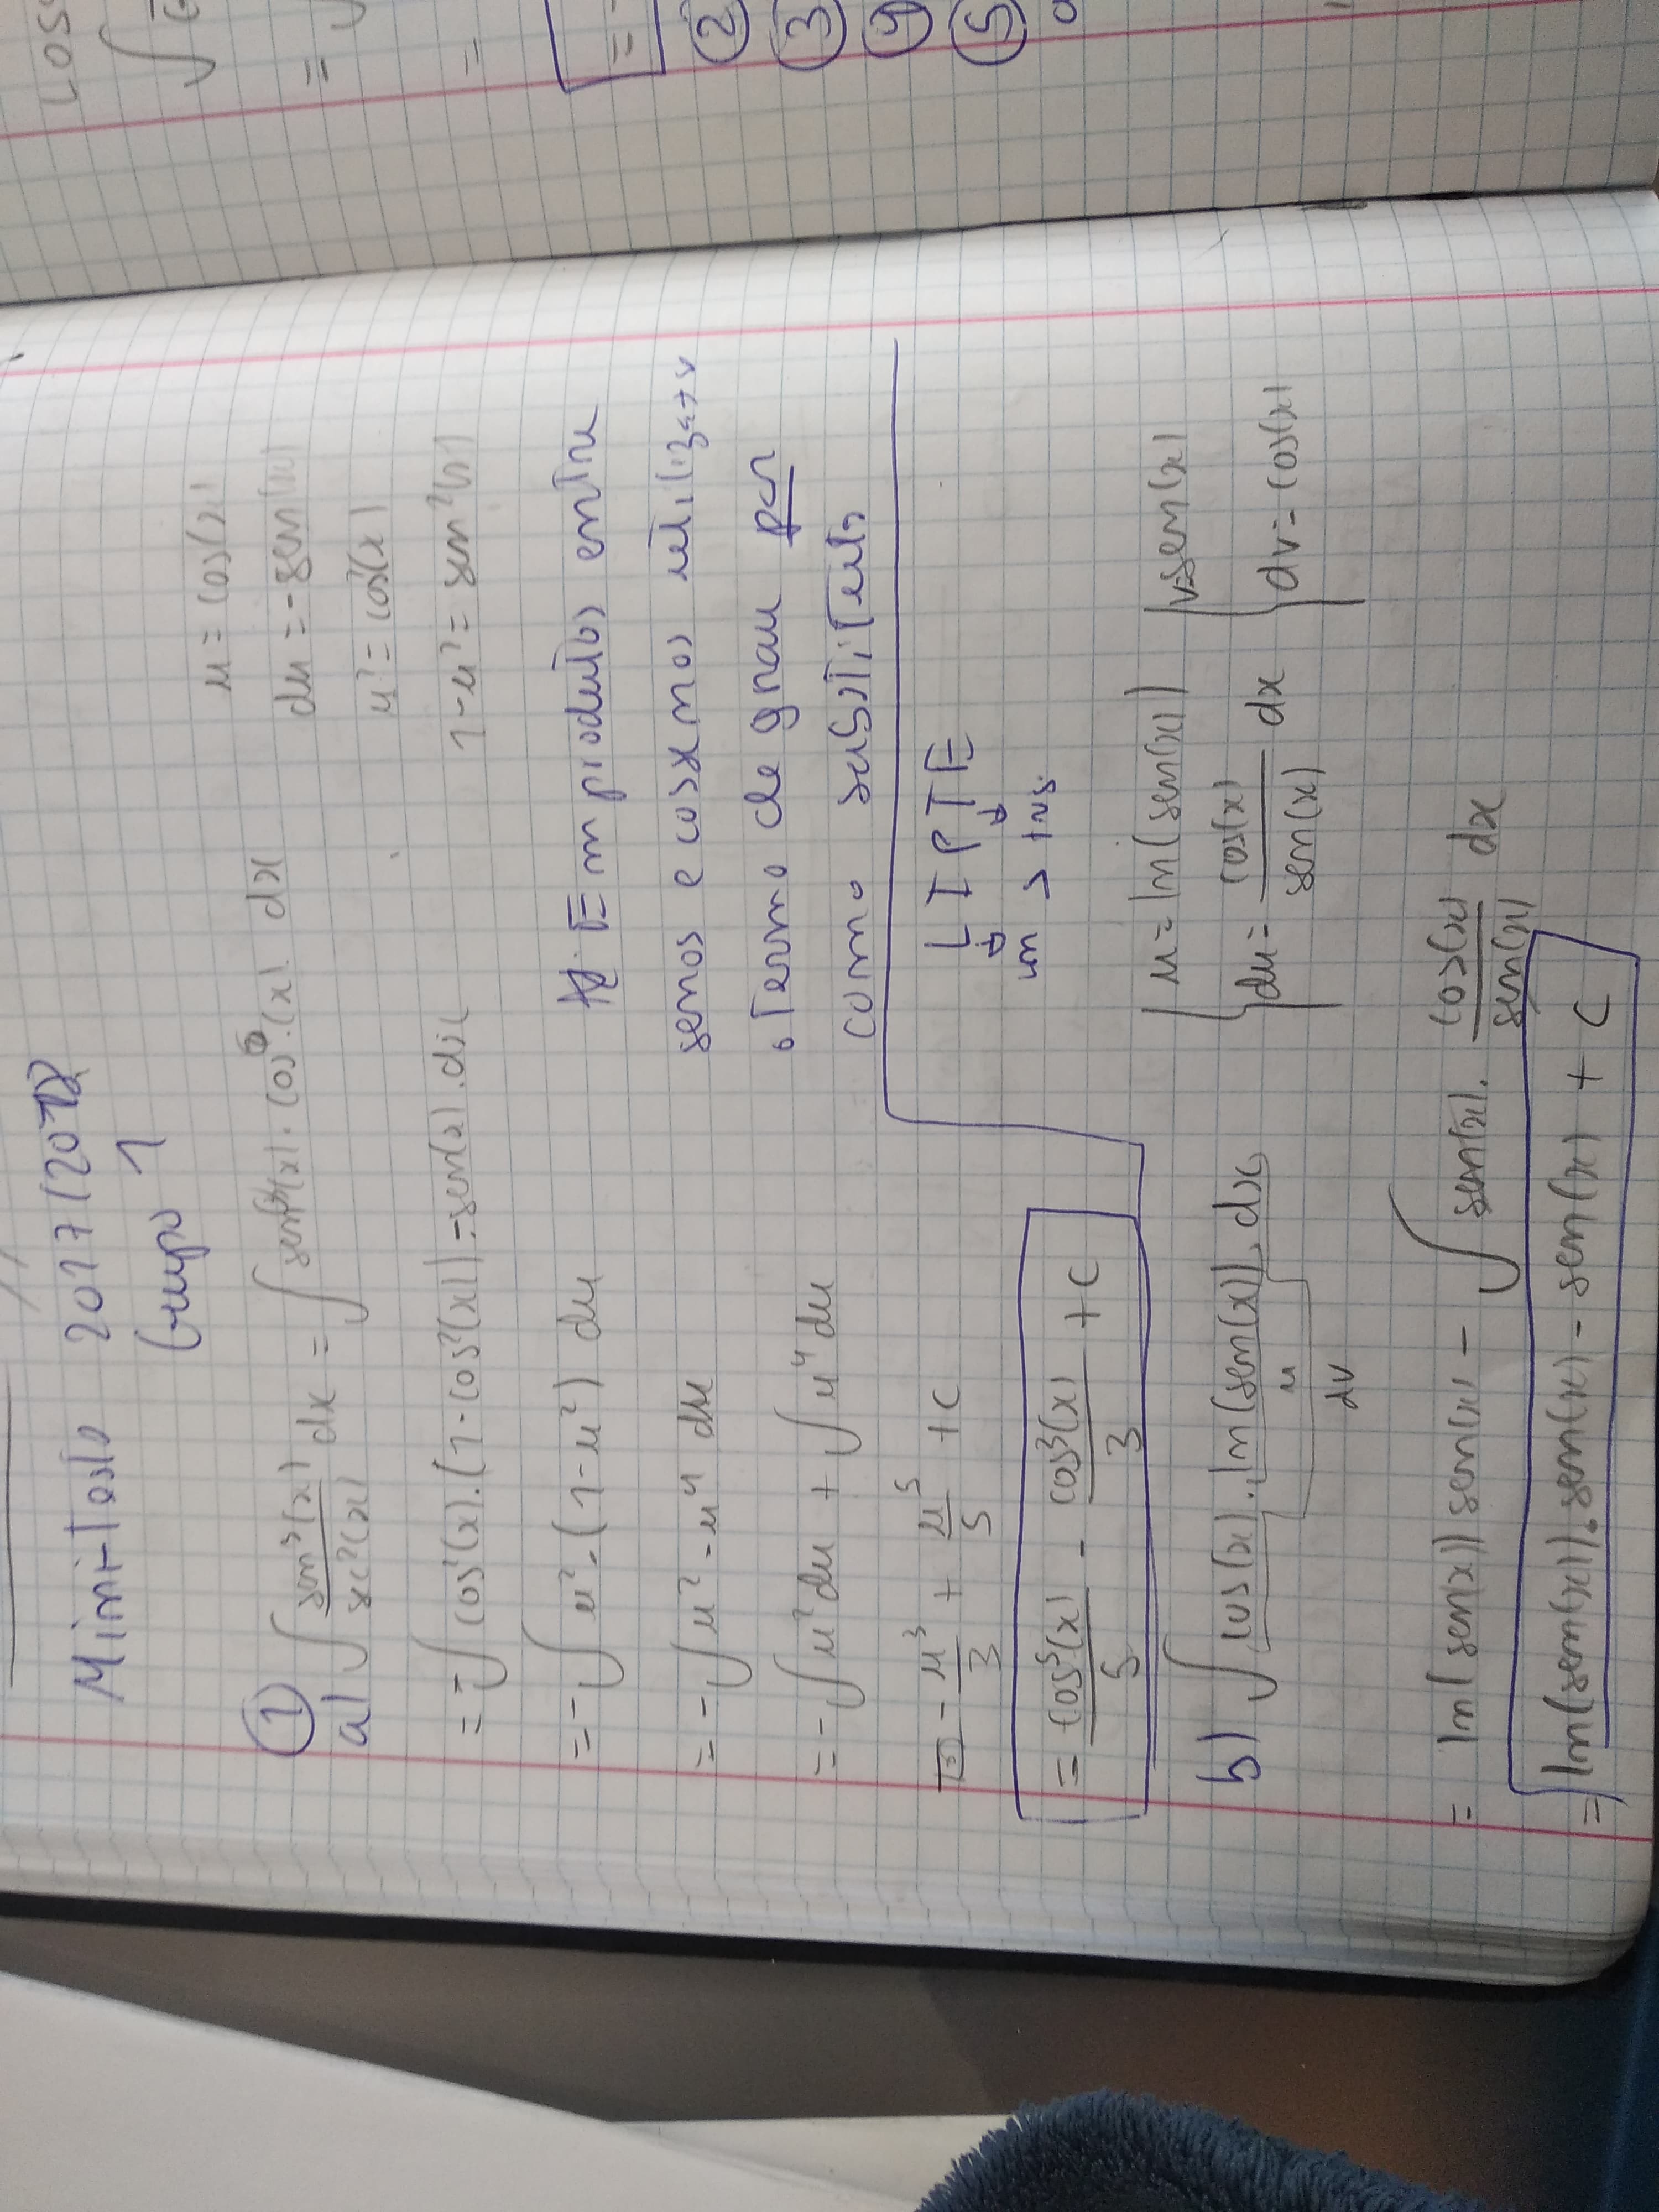 Mini-Teste 2017/2018
Grupo 1
① a) ∫ sen³(x)/sec²(x) dx = ∫ sen³(x). cos²(x) dx
u = cos(x)
du = -sen(x)
u² = cos²(x)
1-u² = sen²(x)
= -∫ cos²(x).(1-cos²(x)) -sen(x).dx
= -∫ u².(1-u²) du
= -∫ u² - u⁴ du
= -∫ u² du + ∫ u⁴ du
= - u³/3 + u⁵/5 + c
= cos⁵(x)/5 - cos³(x)/3 + c
Em produtos entre
senos e cossenos utilizar
o termo de grau par
como substituto
L I P T E
↓ ↓
ln > trig.
b) ∫ cos(x). ln(sen(x)). dx
u
dv
u = ln(sen(x))
du = cos(x)/sen(x) dx
v = sen(x)
dv = cos(x)
= ln(sen(x)) sen(x) - ∫ sen(x). cos(x)/sen(x) dx
= ln(sen(x)).sen(x) - sen(x) + c
=
=
2
3
4
5